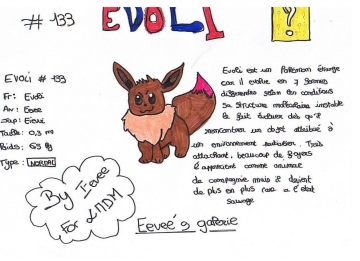 # 133
EVOLI
?
Evoli # 133
Fr: Evoli
An: Eevee
Jap: Eievui
Taille: 0,3 m
Poids: 6,5 kg
Type: NORMAL
Evoli est un Pokémon étrange
car il évolue en 7 formes
différentes selon les conditions
Sa structure moléculaire instable
le fait évoluer dès qu'il
rencontre un objet attribué à
un environnement particulier. Très
attachant, beaucoup de foyers
l'apprécient comme animal
de compagnie mais il devient
de plus en plus rare à l'état
sauvage
By Eevee
For LMDM
Eevee's galerie